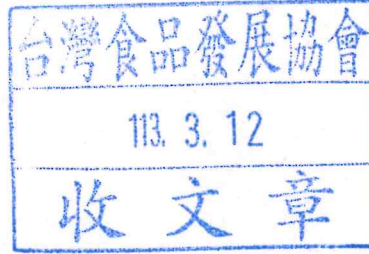 台灣食品發展協會
113. 3. 12
收文章